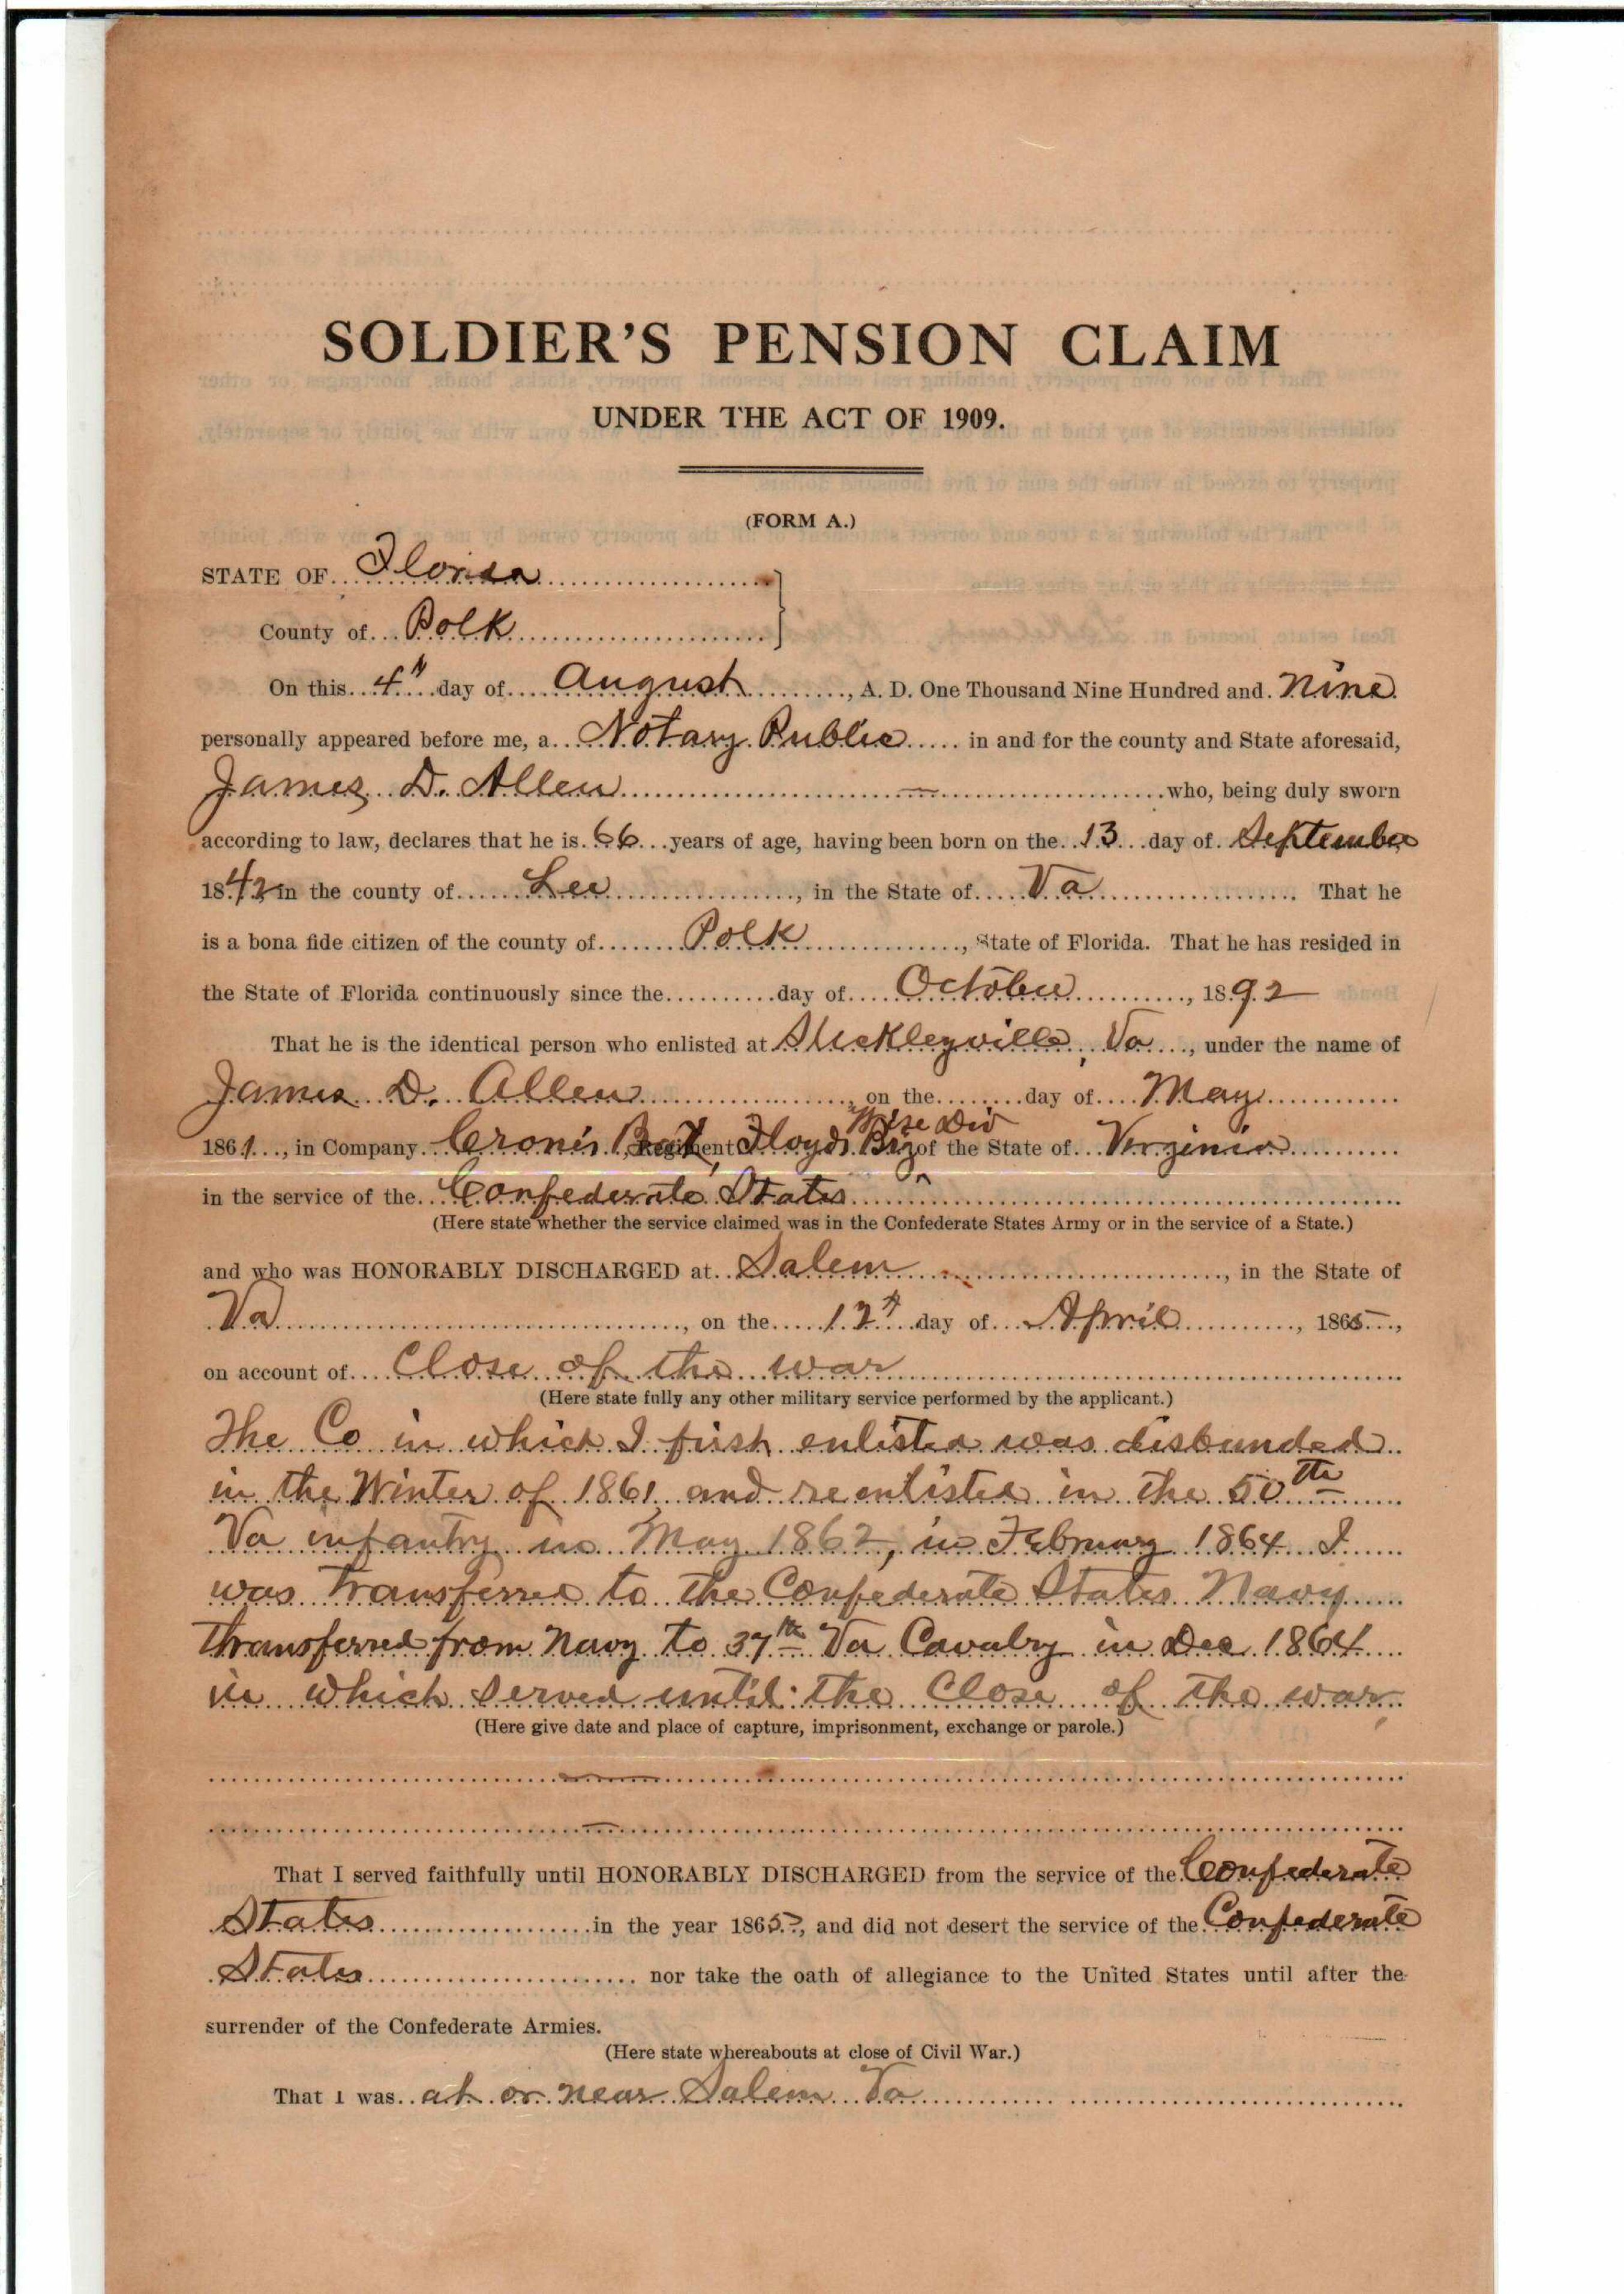 SOLDIER'S PENSION CLAIM
UNDER THE ACT OF 1909.
(FORM A.)
STATE OF Florida
County of Polk
On this 4th day of August, A. D. One Thousand Nine Hundred and nine
personally appeared before me, a Notary Public in and for the county and State aforesaid,
James D. Allen who, being duly sworn
according to law, declares that he is 66 years of age, having been born on the 13 day of September
1842 in the county of Lee, in the State of Va That he
is a bona fide citizen of the county of Polk, State of Florida. That he has resided in
the State of Florida continuously since the day of October, 1892
That he is the identical person who enlisted at Stickleyville, Va, under the name of
James D. Allen, on the day of May
Wise Div
1861, in Company Regiment Floyds Brig of the State of Virginia
in the service of the Confederate States
(Here state whether the service claimed was in the Confederate States Army or in the service of a State.)
and who was HONORABLY DISCHARGED at Salem, in the State of
Va, on the 12th day of April, 1865,
on account of Close of the war
(Here state fully any other military service performed by the applicant.)
The Co in which I first enlisted was disbanded
in the Winter of 1861, and reenlisted in the 50th
Va infantry in May 1862, in February 1864 I
was transferred to the Confederate States Navy
transferred from Navy to 37th Va Cavalry in Dec 1864
in which served until the Close of the war
(Here give date and place of capture, imprisonment, exchange or parole.)
That I served faithfully until HONORABLY DISCHARGED from the service of the Confederate
States in the year 1865, and did not desert the service of the Confederate
States nor take the oath of allegiance to the United States until after the
surrender of the Confederate Armies.
(Here state whereabouts at close of Civil War.)
That I was at or near Salem Va